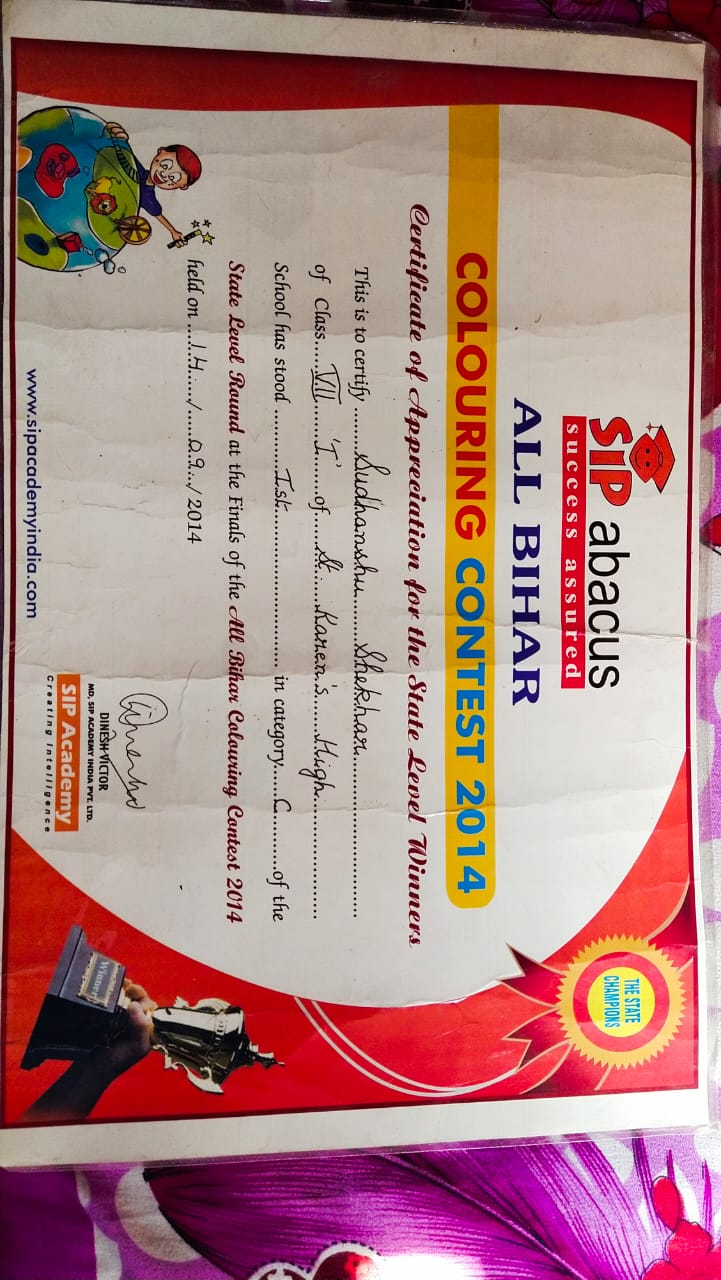 SIP abacus
success assured
ALL BIHAR
COLOURING CONTEST 2014
Certificate of Appreciation for the State Level Winners
THE STATE
CHAMPIONS
This is to certify ......Sudhanshu......Shekhar..........................
of Class.....VII......'I'......of....St.....Karen's.....High..................
School has stood ..........Ist............................ in category....C.........of the
State Level Round at the Finals of the All Bihar Colouring Contest 2014
held on ...14..../.....09.../2014
DINESH VICTOR
MD, SIP ACADEMY INDIA PVT. LTD.
SIP Academy
Creating Intelligence
www.sipacademyindia.com
Winner